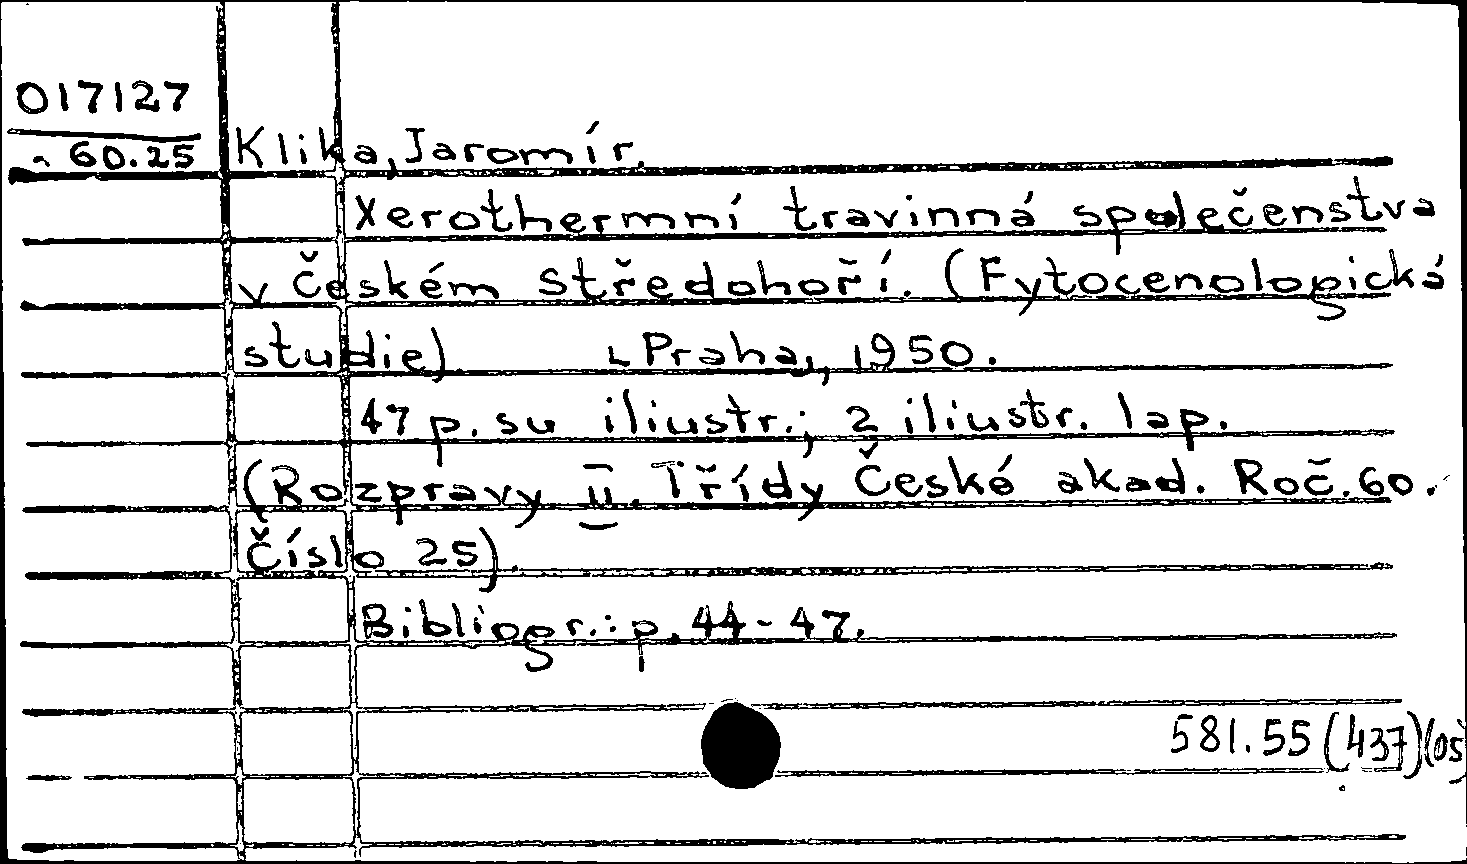 017127
60.25
Klika, Jaromír.
Xerothermní travinná společenstva
v Českém Středohoří. (Fytocenologická
studie). Praha, 1950.
47 p. su iliustr.; 2 iliustr. lap.
(Rozpravy II. Třídy České akad. Roč. 60.
Číslo 25).
Bibliogr.: p. 44-47.
581.55 (437)(05)